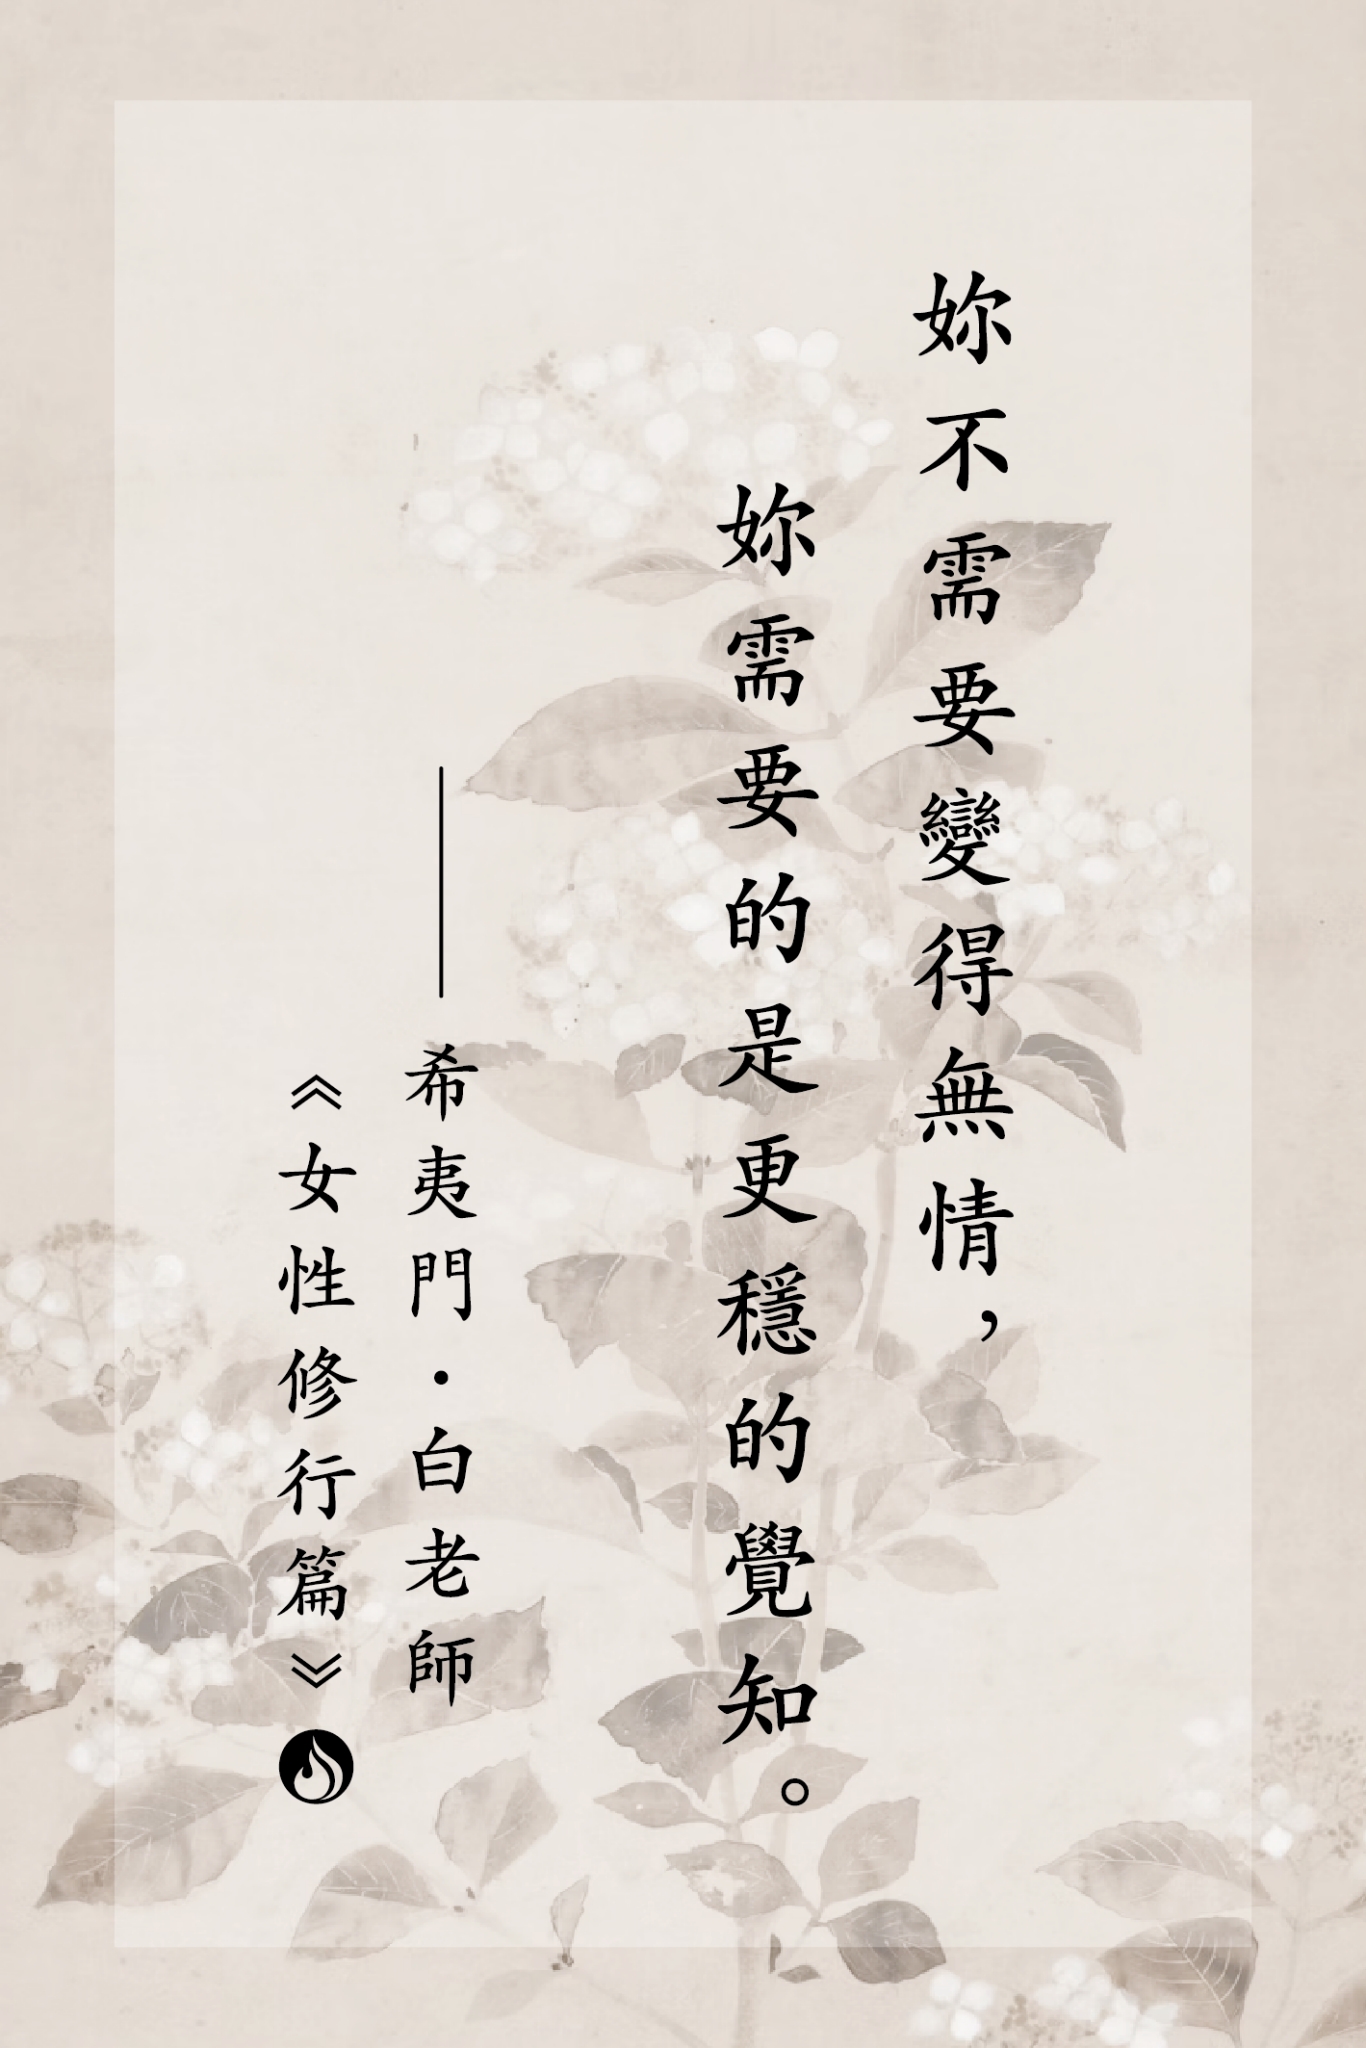 妳不需要變得無情，
妳需要的是更穩的覺知。
——希夷門·白老師
《女性修行篇》